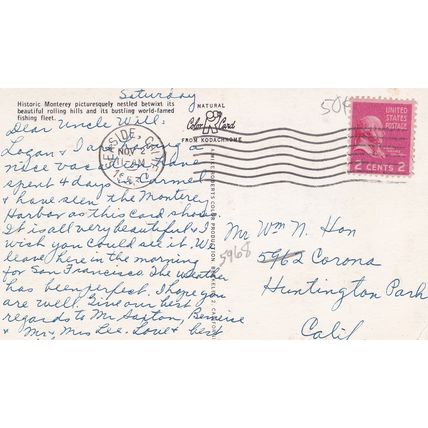 Saturday
Historic Monterey picturesquely nestled betwixt its
beautiful rolling hills and its bustling world-famed
fishing fleet.
Dear Uncle Will:
Logan & I are having a
nice vacation. Have
spent 4 days in Carmel
& have seen the Monterey
Harbor as this card shows
It is all very beautiful & I
wish you could see it. We
leave here in the morning
for San Francisco. The weather
has been perfect. I hope you
are well. Give our best
regards to Mr Saxton, Bernice
& Mr & Mrs Lee. Love & best
NATURAL
Color Card
FROM KODACHROME
SEASIDE, CALIF.
NOV 2
11 AM
50¢
UNITED
STATES
POSTAGE
2 CENTS 2
Mr Wm N. Hon
5968
5962 Corona
Huntington Park
Calif